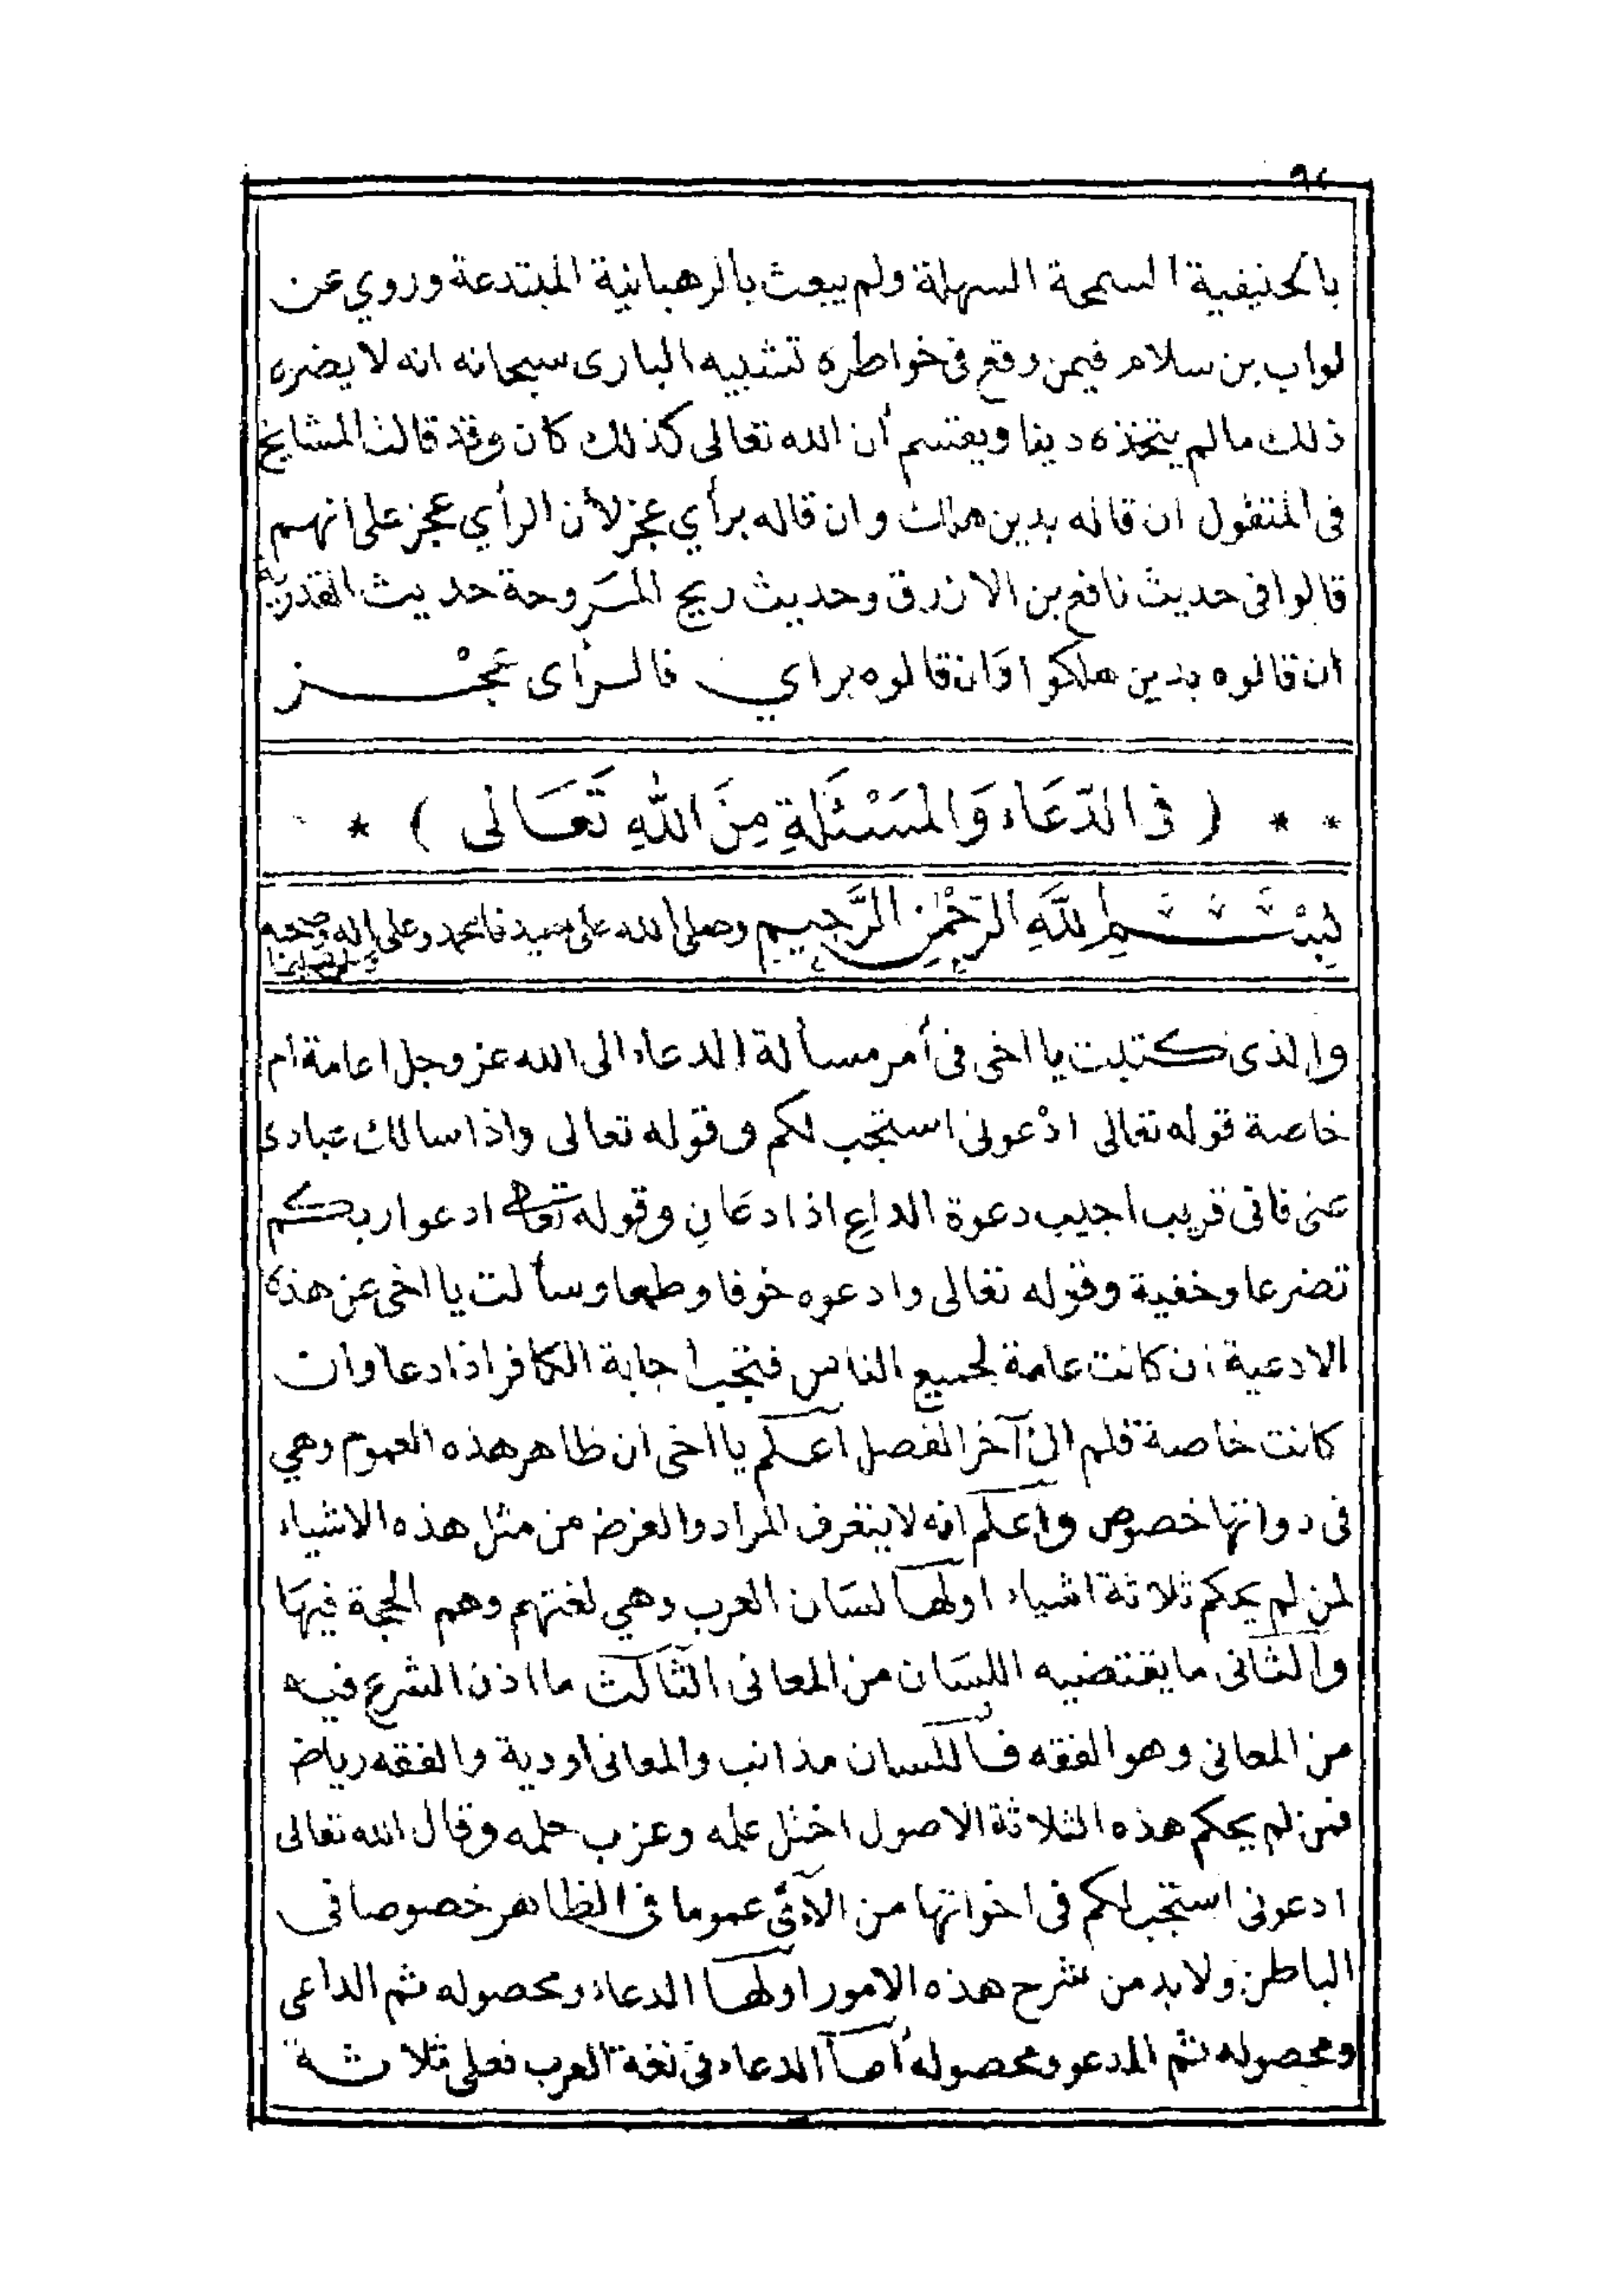 ٩٤
بالحنيفية السمحة السهلة ولم يبعث بالرهبانية المبتدعة وروي عن
لواب بن سلام فيمن وقع فى خواطره تشبيه البارى سبحانه انه لا يضره
ذلك مالم يتخذه دينا ويقسم أن الله تعالى كذلك كان وقد قالت المشايخ
فى المتقول ان قاله بدين هلك وان قاله برأي عجز لأن الرأي عجز على انهم
قالوا فى حديث نافع بن الازرق وحديث ريح المَروحة حديث القدرية
ان قالوه بدين هلكوا وَان قالوه براي فالرأى عَجْز
* * ( فى الدّعَاء وَالمَسْئَلَةِ مِنَ اللهِ تَعَالى ) *
بِسْمِ اللَّهِ الرَّحْمٰنِ الرَّحِيمِ وصلى الله على سيدنا محمد وعلى اله وصحبه
والذى كتبت يا اخى فى أمر مسألة الدعاء الى الله عز وجل اعامة ام
خاصة قوله تعالى ادْعونى استجب لكم وقوله تعالى واذا سالك عبادى
عنى فانى قريب اجيب دعوة الداعِ اذا دعَانِ وقوله تعالى ادعوا ربكم
تضرعا وخفية وقوله تعالى وادعوه خوفا وطمعا وسألت يا اخى عن هذه
الادعية ان كانت عامة لجميع الناس فتجب اجابة الكافر اذا دعا وان
كانت خاصة فلم الى آخر الفصل اعلم يا اخى ان ظاهر هذه العموم وهي
فى ذواتها خصوص واعلم انه لا يتعرف المراد والغرض من مثل هذه الاشياء
لمن لم يحكم ثلاثة اشياء اولها لسَان العرب وهي لغتهم وهم الحجة فيهَا
والثانى ما يقتضيه اللسَان من المعانى الثالث ما اذن الشرع فيه
من المعانى وهو الفقه فاللسان مذانب والمعانى اودية والفقه رياض
فمن لم يحكم هذه الثلاثة الاصول اختل علمه وعزب حلمه وقال الله تعالى
ادعونى استجب لكم فى اخواتها من الآي عموما فى الظاهر خصوصا فى
الباطن ولا بد من شرح هذه الامور اولها الدعاء ومحصوله ثم الداعى
ومحصوله ثم المدعو ومحصوله أما الدعاء فى لغة العرب فعلى ثلاثة